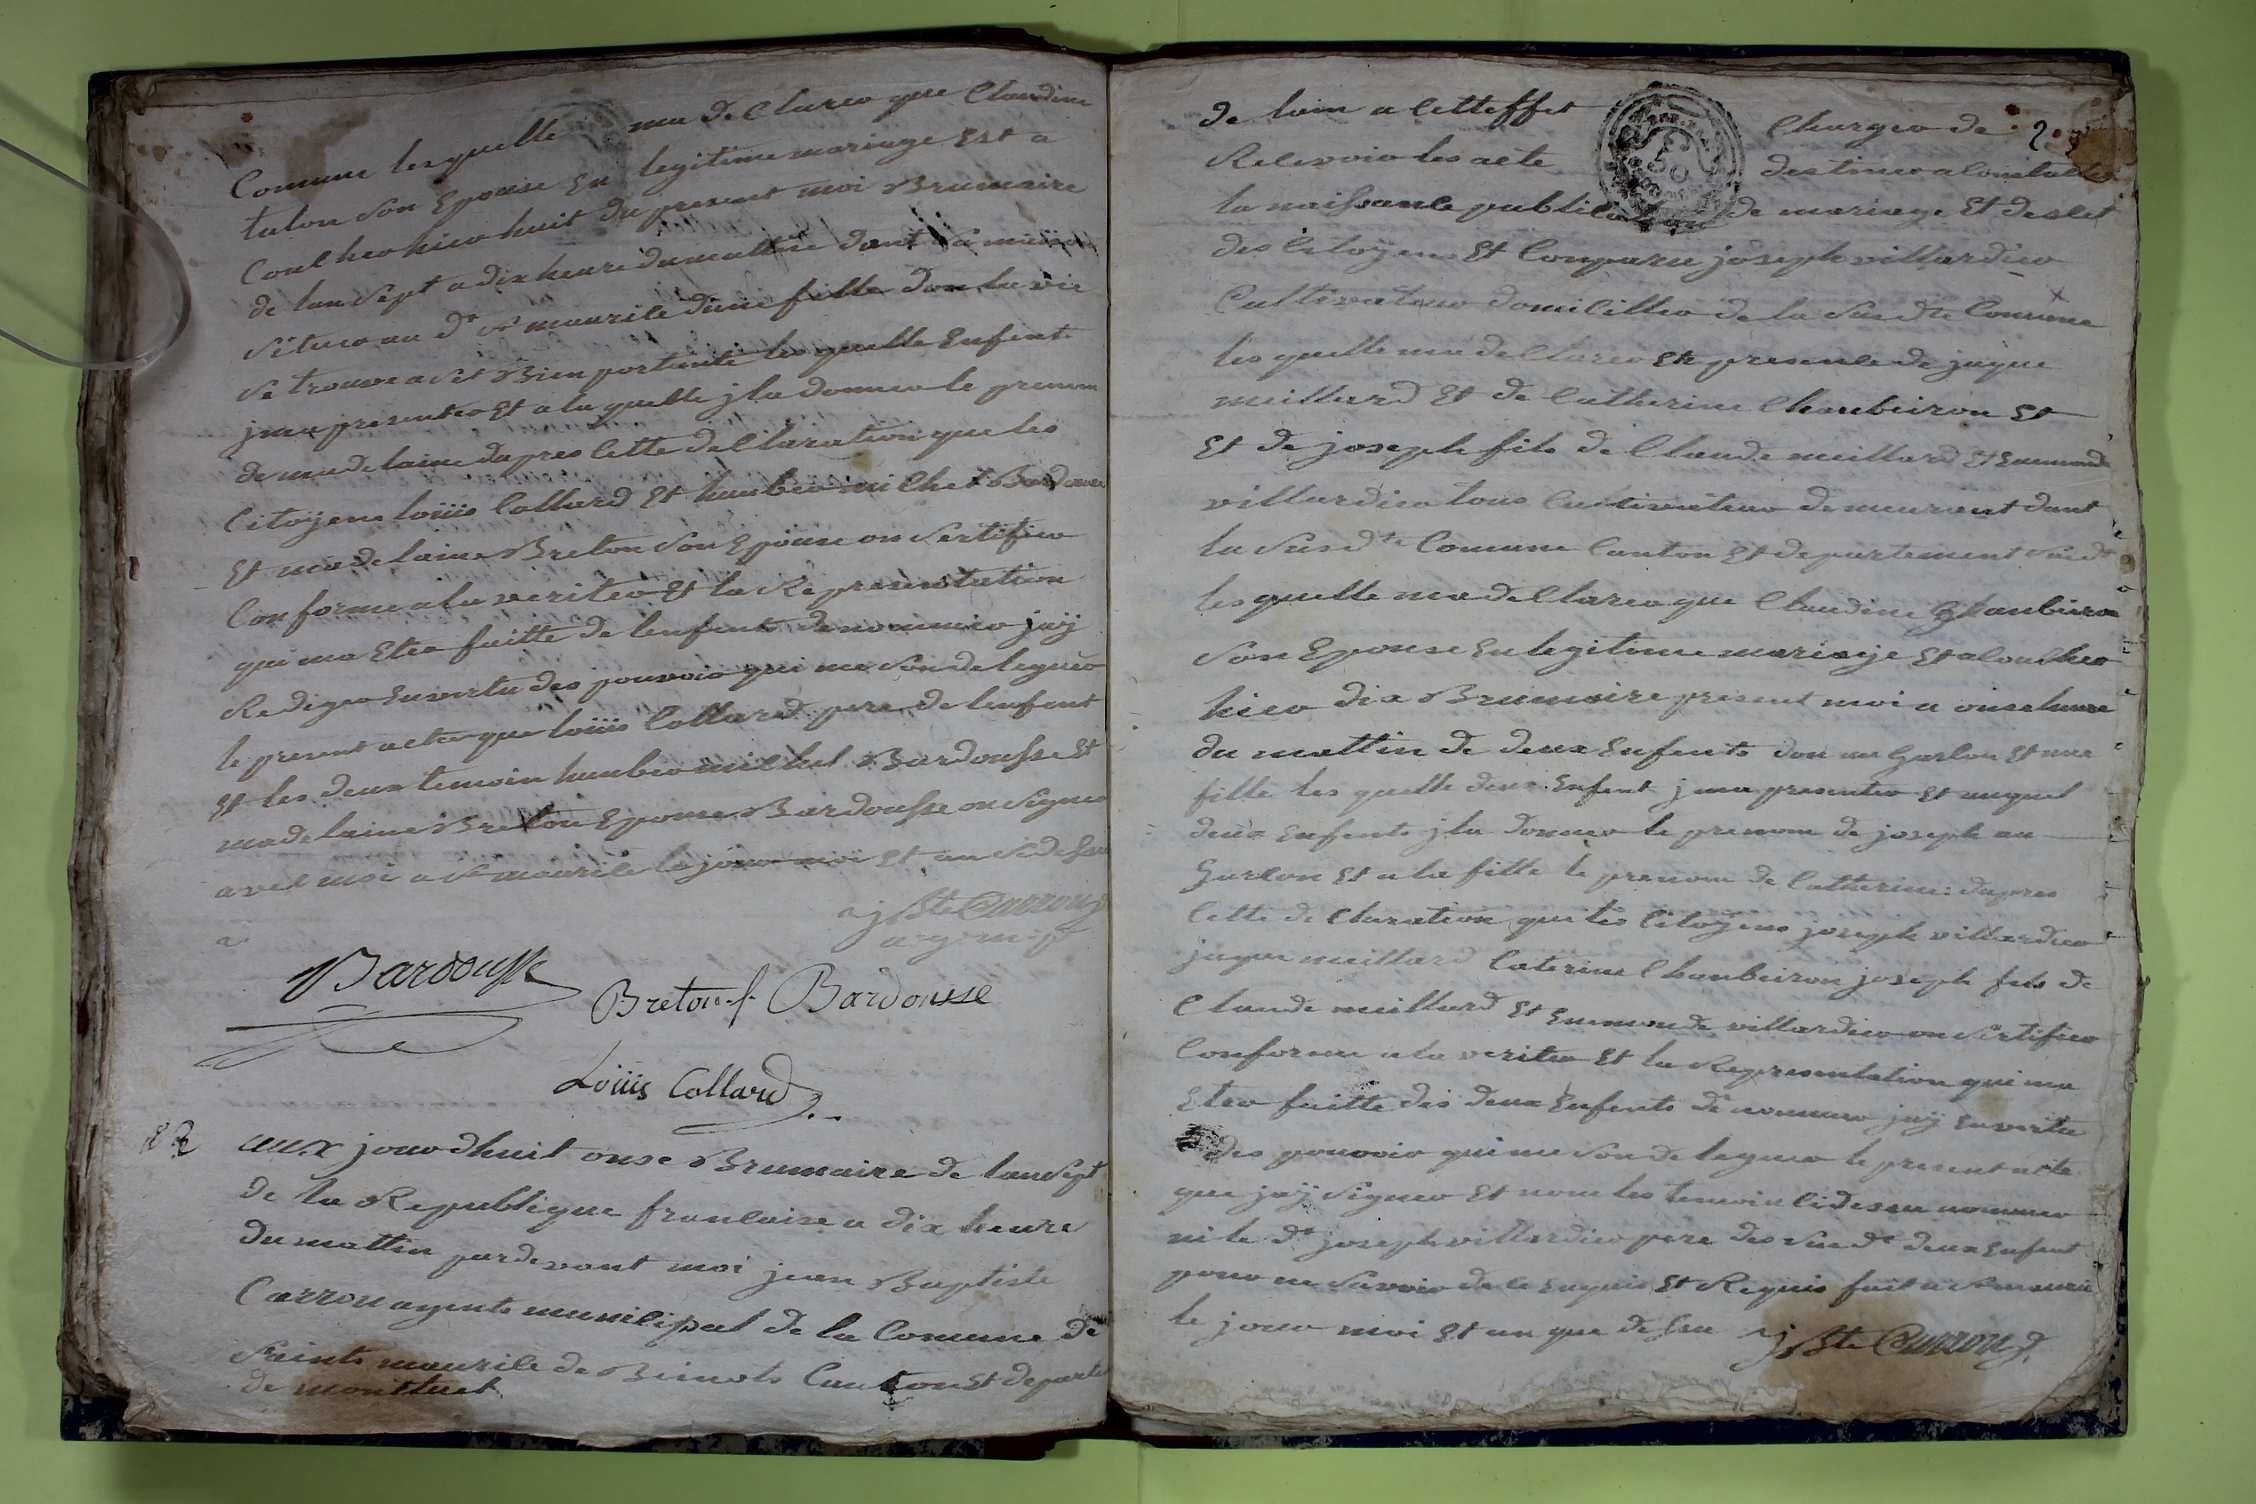 Comune lesquelle ma declareo que Claudine
talon son Epouse En legitime mariage Est a
Coulheo hieo huit du present moi Brumaire
de lan sept a dix heure du mattin dant sa maison
situeo au dt st maurile dune fille don la vie
se trouve a set Bien portante lesquelle Enfent
jma presenteo Et a la quelle jla donneo le prenom
de madelaine dapres cette declaration que les
Citoyens louiis Collard Et haubeo milhel Bardousse
Et madelaine Breton son Epouse on sertifieo
Conforme a la veriteo Et la Representation
qui ma Eteo faitte de lenfent denommeo jaÿ
Redigeo En vertu des pouvoio qui me son delegueo
le present acte que louiis Collard pere de lenfent
Et les deux temoin haubeo milhel Bardousse Et
madelaine Breton Epouse Bardousse on signeo
avec moi a st maurile le jouo moi Et an sidesu
jbte Carron
agent
Bardousse
Breton f. Bardousse
Louiis Collard
aux jouodhuit onse Brumaire de lan sept
de la Republique francaise a dix heure
du mattin pardevant moi jean Baptiste
Carron agente municipal de la Comune de
sainte maurile de Beinots Canton Et departe
de montluet
de lain a cetteffet Chargeo de
Relevoio les acte destineo a Constateo
la naissance publica de mariage Et deslet
des Citoyens Et Comparu joseph villardieo
Cultivateuo domicillieo de la susdte Comune
lesquelle ma declareo En presence de jaque
meillard Et de Catherine Chaubeiron Et
Et de joseph fils de Claude meillard Et Enmonde
villardieo tous Cultivateuo demeurent dant
la susdte Comune Canton Et departement susdt
lesquelle ma declareo que Claudine Chaubeiron
son Epouse En legitime mariage Et a Coulheo
hieo dix Brumaire present moi a onse heure
du mattin de deux Enfents don un Garson Et une
fille lesquelle deux Enfent jma presenteo Et auquel
deux Enfents jla donneo le prenom de joseph au
Garson Et a la fille le prenom de Catherine dapres
cette declaration que les Citoyens joseph villardieo
jaque meillard Caterine Chaubeiron joseph fils de
Claude meillard Et Enmonde villardieo on sertifieo
Conforme a la veriteo Et la Representation qui ma
Eteo faitte des deux Enfents denommeo jaÿ En vertu
des pouvoio qui me son delegueo le present acte
que jaÿ signeo Et non les temoin cidesu nommeo
ni le dt joseph villardieo pere des susdt deux Enfent
pouo ne savoio de ce Enquis Et Requis fait a st maurile
le jouo moi Et an que desu jbte Carron